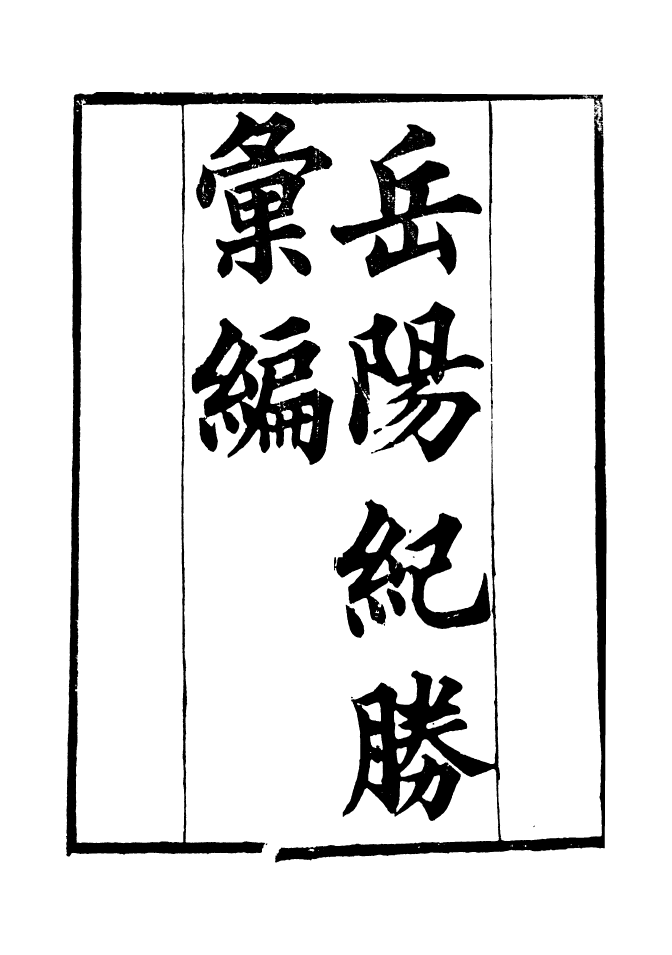 岳陽紀勝
彙編